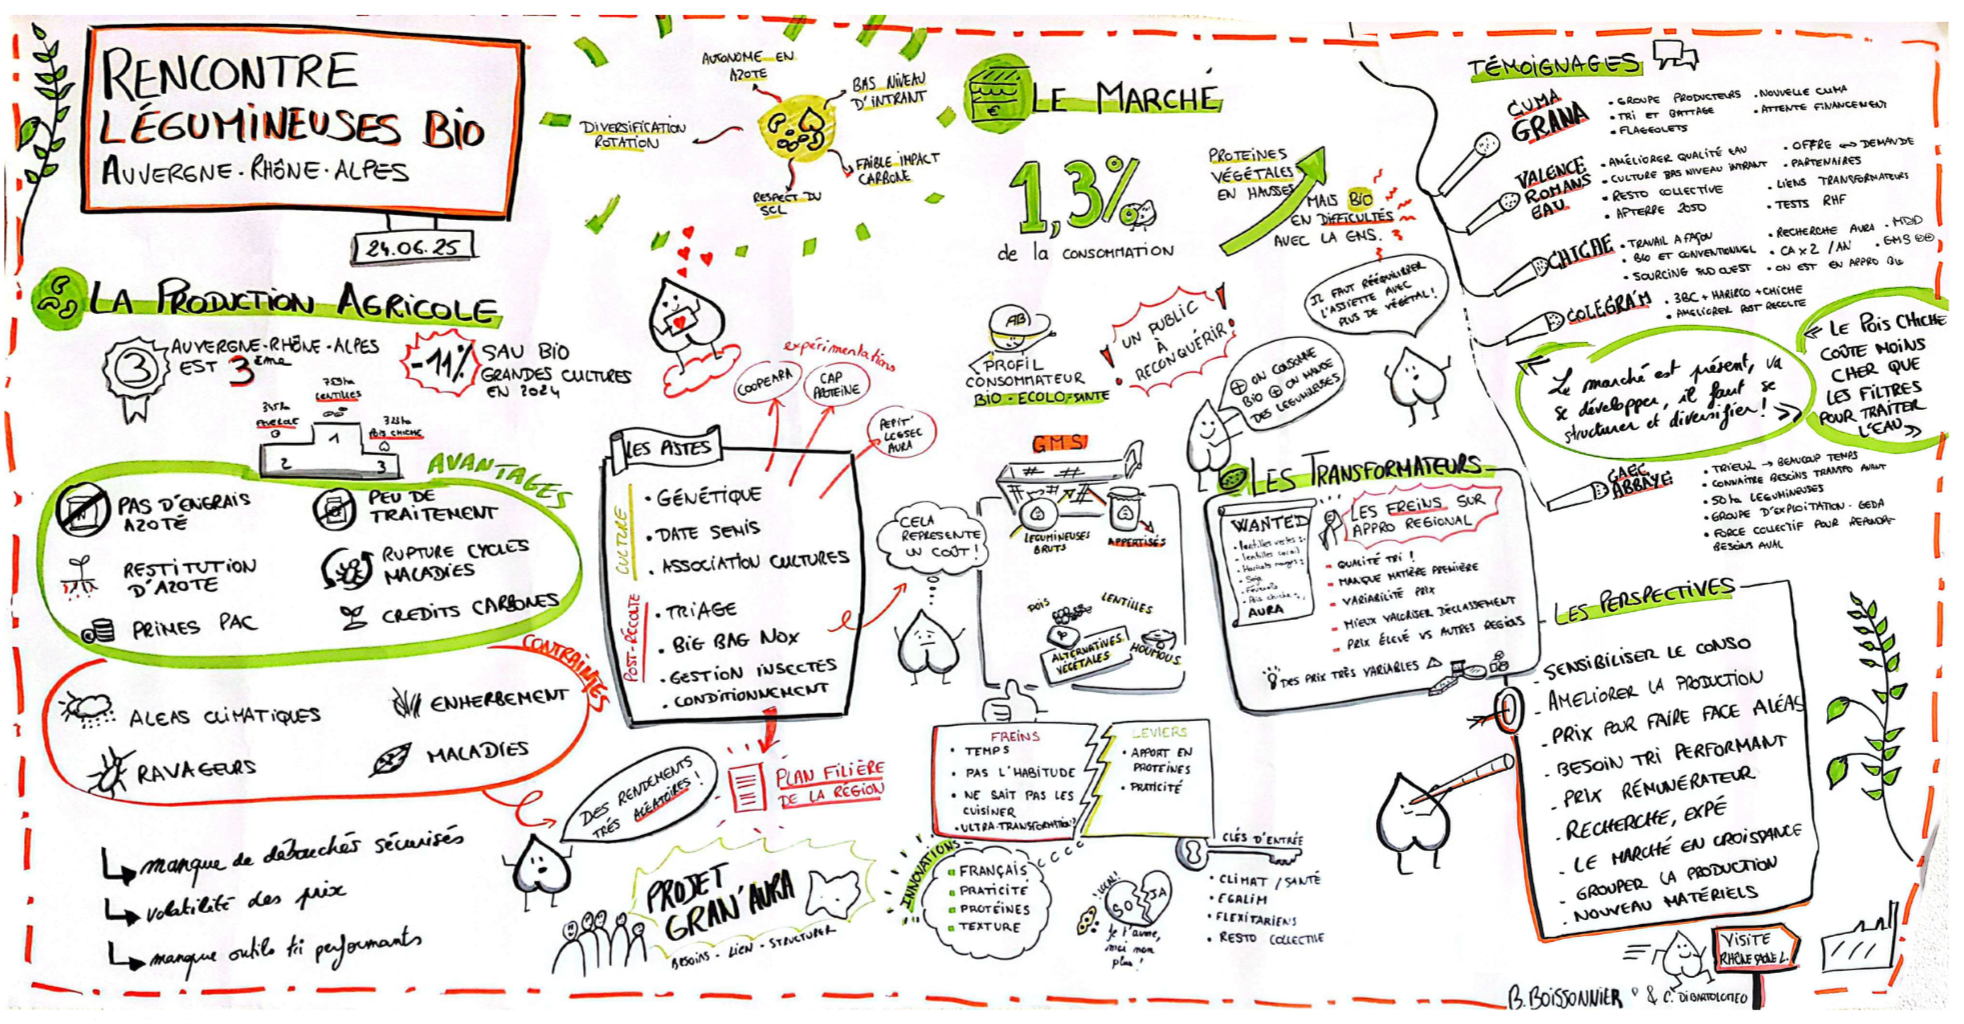 RENCONTRE
LÉGUMINEUSES BIO
AUVERGNE-RHÔNE-ALPES
24.06.25
AUTONOME EN
AZOTE
BAS NIVEAU
D'INTRANT
DIVERSIFICATION
ROTATION
FAIBLE IMPACT
CARBONE
RESPECT DU
SOL
LA PRODUCTION AGRICOLE
3
AUVERGNE-RHÔNE-ALPES
EST 3ème
-11%
SAU BIO
GRANDES CULTURES
EN 2024
LENTILLES
POIS CHICHE
1
2
3
AVANTAGES
PAS D'ENGRAIS
AZOTÉ
PEU DE
TRAITEMENT
RESTITUTION
D'AZOTE
RUPTURE CYCLES
MALADIES
PRIMES PAC
CREDITS CARBONES
CONTRAINTES
ALEAS CLIMATIQUES
ENHERBEMENT
RAVAGEURS
MALADIES
manque de débouchés sécurisés
volatilité des prix
manque outils tri performants
DES RENDEMENTS
TRÈS ALÉATOIRES !
expérimentations
COOPEARA
CAP
PROTEINE
PEPIT
LEGSEC
AURA
LES PISTES
CULTURE
• GÉNÉTIQUE
• DATE SEMIS
• ASSOCIATION CULTURES
POST-RÉCOLTE
• TRIAGE
• BIG BAG NOX
• GESTION INSECTES
• CONDITIONNEMENT
CELA
REPRESENTE
UN COÛT !
PLAN FILIÈRE
DE LA RÉGION
PROJET
GRAN'AURA
BESOINS - LIEN - STRUCTURER
LE MARCHÉ
1,3%
de la CONSOMMATION
PROTEINES
VÉGÉTALES
EN HAUSSE
MAIS BIO
EN DIFFICULTÉS
AVEC LA GMS.
AB
PROFIL
CONSOMMATEUR
BIO - ECOLO - SANTE
UN PUBLIC
À
RECONQUÉRIR !
IL FAUT RÉÉQUILIBRER
L'ASSIETTE AVEC
PLUS DE VÉGÉTAL !
⊕ ON CONSOMME
BIO ⊕ ON MANGE
DES LEGUMINEUSES
GMS
LEGUMINEUSES
BRUTS
APPERTISÉS
POIS
LENTILLES
ALTERNATIVES
VÉGÉTALES
HOUMOUS
FREINS
• TEMPS
• PAS L'HABITUDE
• NE SAIT PAS LES
CUISINER
• ULTRA-TRANSFORMATION ?
LEVIERS
• APPORT EN
PROTEINES
• PRATICITÉ
INNOVATIONS
FRANÇAIS
PRATICITÉ
PROTÉINES
TEXTURE
LOCAL !
SOJA
je t'aime,
moi non
plus !
CLÉS D'ENTRÉE
• CLIMAT / SANTÉ
• EGALIM
• FLEXITARIENS
• RESTO COLLECTIVE
LES TRANSFORMATEURS
WANTED
• lentilles vertes
• lentilles corail
• Haricots rouges
• Soja
• Pois chiche
AURA
LES FREINS SUR
APPRO REGIONAL
- QUALITÉ TRI !
- MANQUE MATIÈRE PREMIÈRE
- VARIABILITÉ PRIX
- MIEUX VALORISER DÉCLASSEMENT
- PRIX ÉLEVÉ VS AUTRES REGIONS
DES PRIX TRÈS VARIABLES
TÉMOIGNAGES
CUMA
GRANA
• GROUPE PRODUCTEURS
• TRI ET BATTAGE
• FLAGEOLETS
• NOUVELLE CUMA
• ATTENTE FINANCEMENT
VALENCE
ROMANS
EAU
• AMÉLIORER QUALITÉ EAU
• CULTURE BAS NIVEAU INTRANT
• RESTO COLLECTIVE
• APTERRE 2050
• OFFRE ⇔ DEMANDE
• PARTENAIRES
• LIENS TRANSFORMATEURS
• TESTS RHF
CHICHE
• TRAVAIL A FAÇON
• BIO ET CONVENTIONNEL
• SOURCING SUD OUEST
• RECHERCHE AURA
• CA x 2 / AN
• MDD
• GMS
COLEGRA'M
• 3BC + HARICO + CHICHE
• AMELIORER POST RECOLTE
« Le marché est présent, va
se développer, il faut se
structurer et diversifier ! »
« LE POIS CHICHE
COÛTE MOINS
CHER QUE
LES FILTRES
POUR TRAITER
L'EAU »
GAEC
ABBAYE
• TRIEUR → BEAUCOUP TEMPS
• CONNAITRE BESOINS TRANSFO AVANT
• 50 ha LEGUMINEUSES
• GROUPE D'EXPLOITATION - GEDA
• FORCE COLLECTIF POUR REPONDRE
BESOINS AVAL
LES PERSPECTIVES
- SENSIBILISER LE CONSO
- AMELIORER LA PRODUCTION
- PRIX POUR FAIRE FACE ALÉAS
- BESOIN TRI PERFORMANT
- PRIX RÉMUNERATEUR
- RECHERCHE, EXPÉ
- LE MARCHÉ EN CROISSANCE
- GROUPER LA PRODUCTION
- NOUVEAU MATÉRIELS
VISITE
RHÔNE SAONE L.
B. BOISSONNIER & C. DIBARTOLOMEO